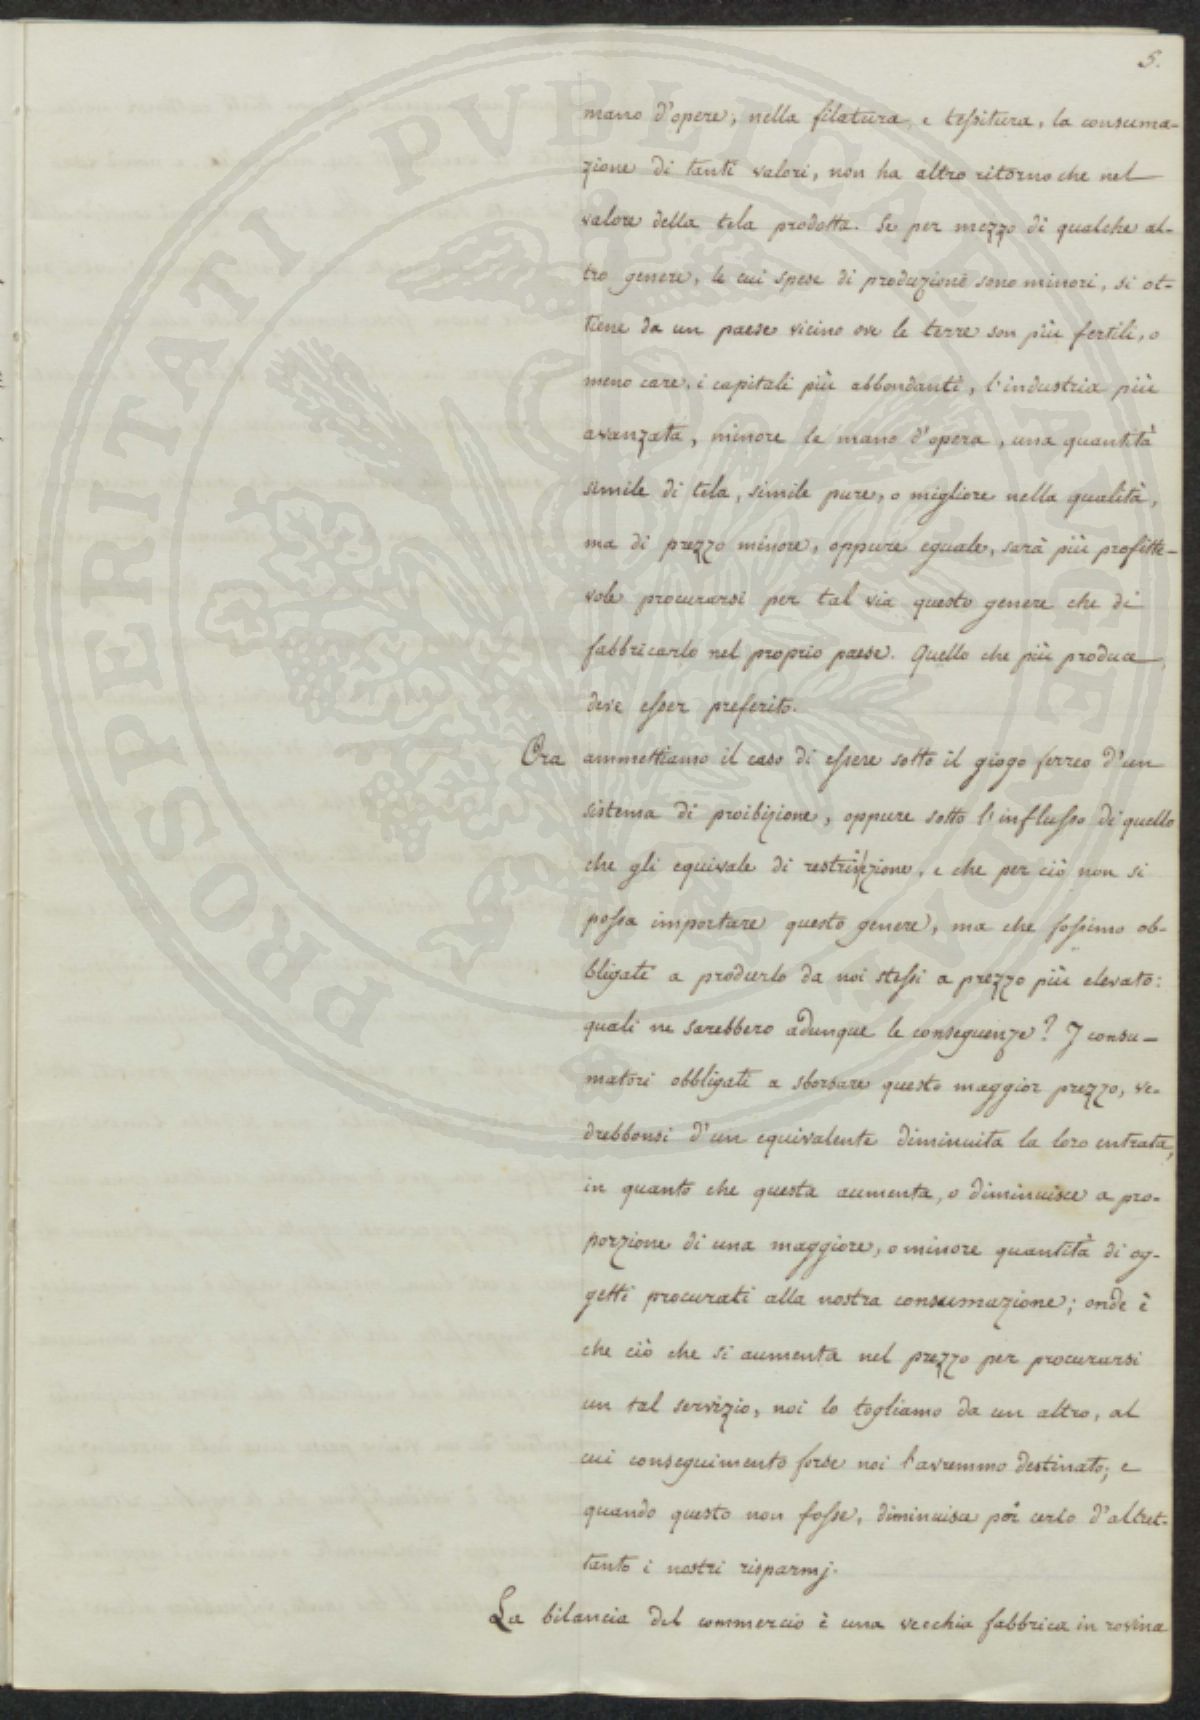 5.
mano d'opere, nella filatura, e tessitura, la consuma-
zione di tanti valori, non ha altro ritorno che nel
valore della tela prodotta. Se per mezzo di qualche al-
tro genere, le cui spese di produzione sono minori, si ot-
tiene da un paese vicino ove le terre son più fertili, o
meno care, i capitali più abbondanti, l'industria più
avanzata, minore la mano d'opera, una quantità
simile di tela, simile pure, o migliore nella qualità,
ma di prezzo minore, oppure eguale, sarà più profitte-
vole procurarsi per tal via questo genere che di
fabbricarlo nel proprio paese. Quello che più produce
deve esser preferito.
Ora ammettiamo il caso di essere sotto il giogo ferreo d'un
sistema di proibizione, oppure sotto l'influsso di quello
che gli equivale di restrizione, e che per ciò non si
possa importare questo genere, ma che fossimo ob-
bligati a produrlo da noi stessi a prezzo più elevato:
quali ne sarebbero adunque le conseguenze? I consu-
matori obbligati a sborsare questo maggior prezzo, ve-
drebbonsi d'un equivalente diminuita la loro entrata,
in quanto che questa aumenta, o diminuisce a pro-
porzione di una maggiore, o minore quantità di og-
getti procurati alla nostra consumazione; onde è
che ciò che si aumenta nel prezzo per procurarsi
un tal servizio, noi lo togliamo da un altro, al
cui conseguimento forse noi l'avremmo destinato; e
quando questo non fosse, diminuisce poi certo d'altret-
tanto i nostri risparmj.
La bilancia del commercio è una vecchia fabbrica in rovina
PROSPERITATI PVBLICAE AVGENDAE